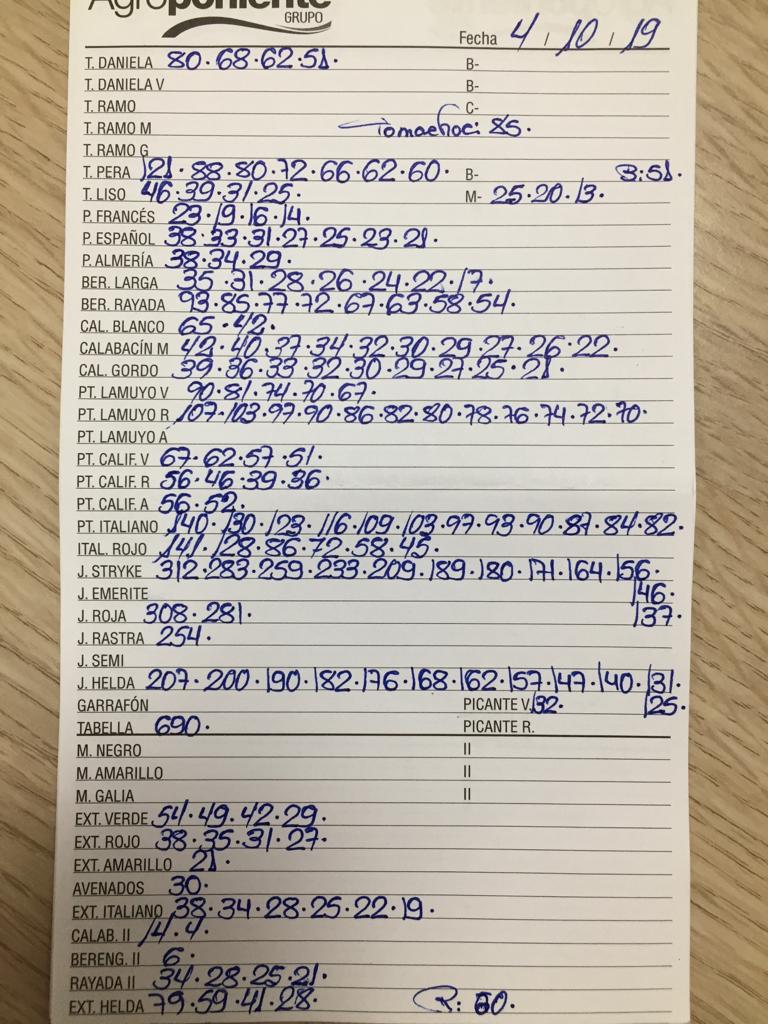 Agroponiente
GRUPO
Fecha 4 / 10 / 19
T. DANIELA 80.68.62.51. B-
T. DANIELA V B-
T. RAMO C-
T. RAMO M Tomachoc: 85.
T. RAMO G
T. PERA 121.88.80.72.66.62.60. B- B:51.
T. LISO 46.39.31.25. M- 25.20.13.
P. FRANCÉS 23.19.16.14.
P. ESPAÑOL 38.33.31.27.25.23.21.
P. ALMERÍA 38.34.29.
BER. LARGA 35.31.28.26.24.22.17.
BER. RAYADA 93.85.77.72.67.63.58.54.
CAL. BLANCO 65.42.
CALABACÍN M 42.40.37.34.32.30.29.27.26.22.
CAL. GORDO 39.36.33.32.30.29.27.25.21.
PT. LAMUYO V 90.81.74.70.67.
PT. LAMUYO R 107.103.97.90.86.82.80.78.76.74.72.70.
PT. LAMUYO A
PT. CALIF. V 67.62.57.51.
PT. CALIF. R 56.46.39.36.
PT. CALIF. A 56.52.
PT. ITALIANO 140.130.123.116.109.103.97.93.90.87.84.82.
ITAL. ROJO 141.128.86.72.58.45.
J. STRYKE 312.283.259.233.209.189.180.171.164.156.
J. EMERITE 146.
J. ROJA 308.281. 137.
J. RASTRA 254.
J. SEMI
J. HELDA 207.200.190.182.176.168.162.157.147.140.131.
GARRAFÓN PICANTE V. 132. 125.
TABELLA 690. PICANTE R.
M. NEGRO II
M. AMARILLO II
M. GALIA II
EXT. VERDE 54.49.42.29.
EXT. ROJO 38.35.31.27.
EXT. AMARILLO 21.
AVENADOS 30.
EXT. ITALIANO 38.34.28.25.22.19.
CALAB. II 14.4.
BERENG. II 6.
RAYADA II 34.28.25.21.
EXT. HELDA 79.59.41.28. R: 60.